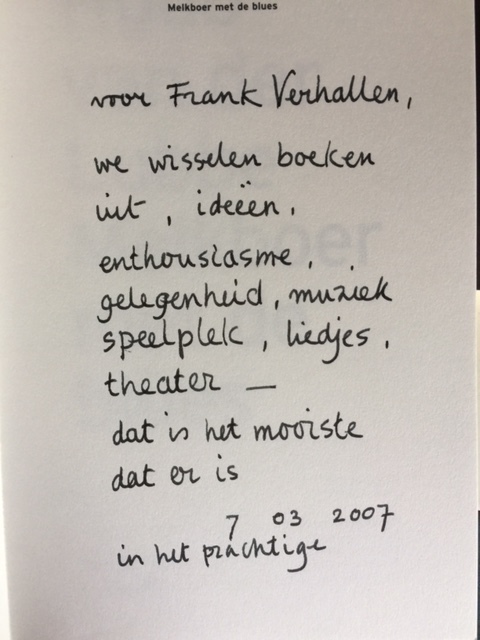 Melkboer met de blues
voor Frank Verhallen,
we wisselen boeken
uit, ideeën,
enthousiasme,
gelegenheid, muziek
speelplek, liedjes,
theater —
dat is het mooiste
dat er is
7 03 2007
in het prachtige